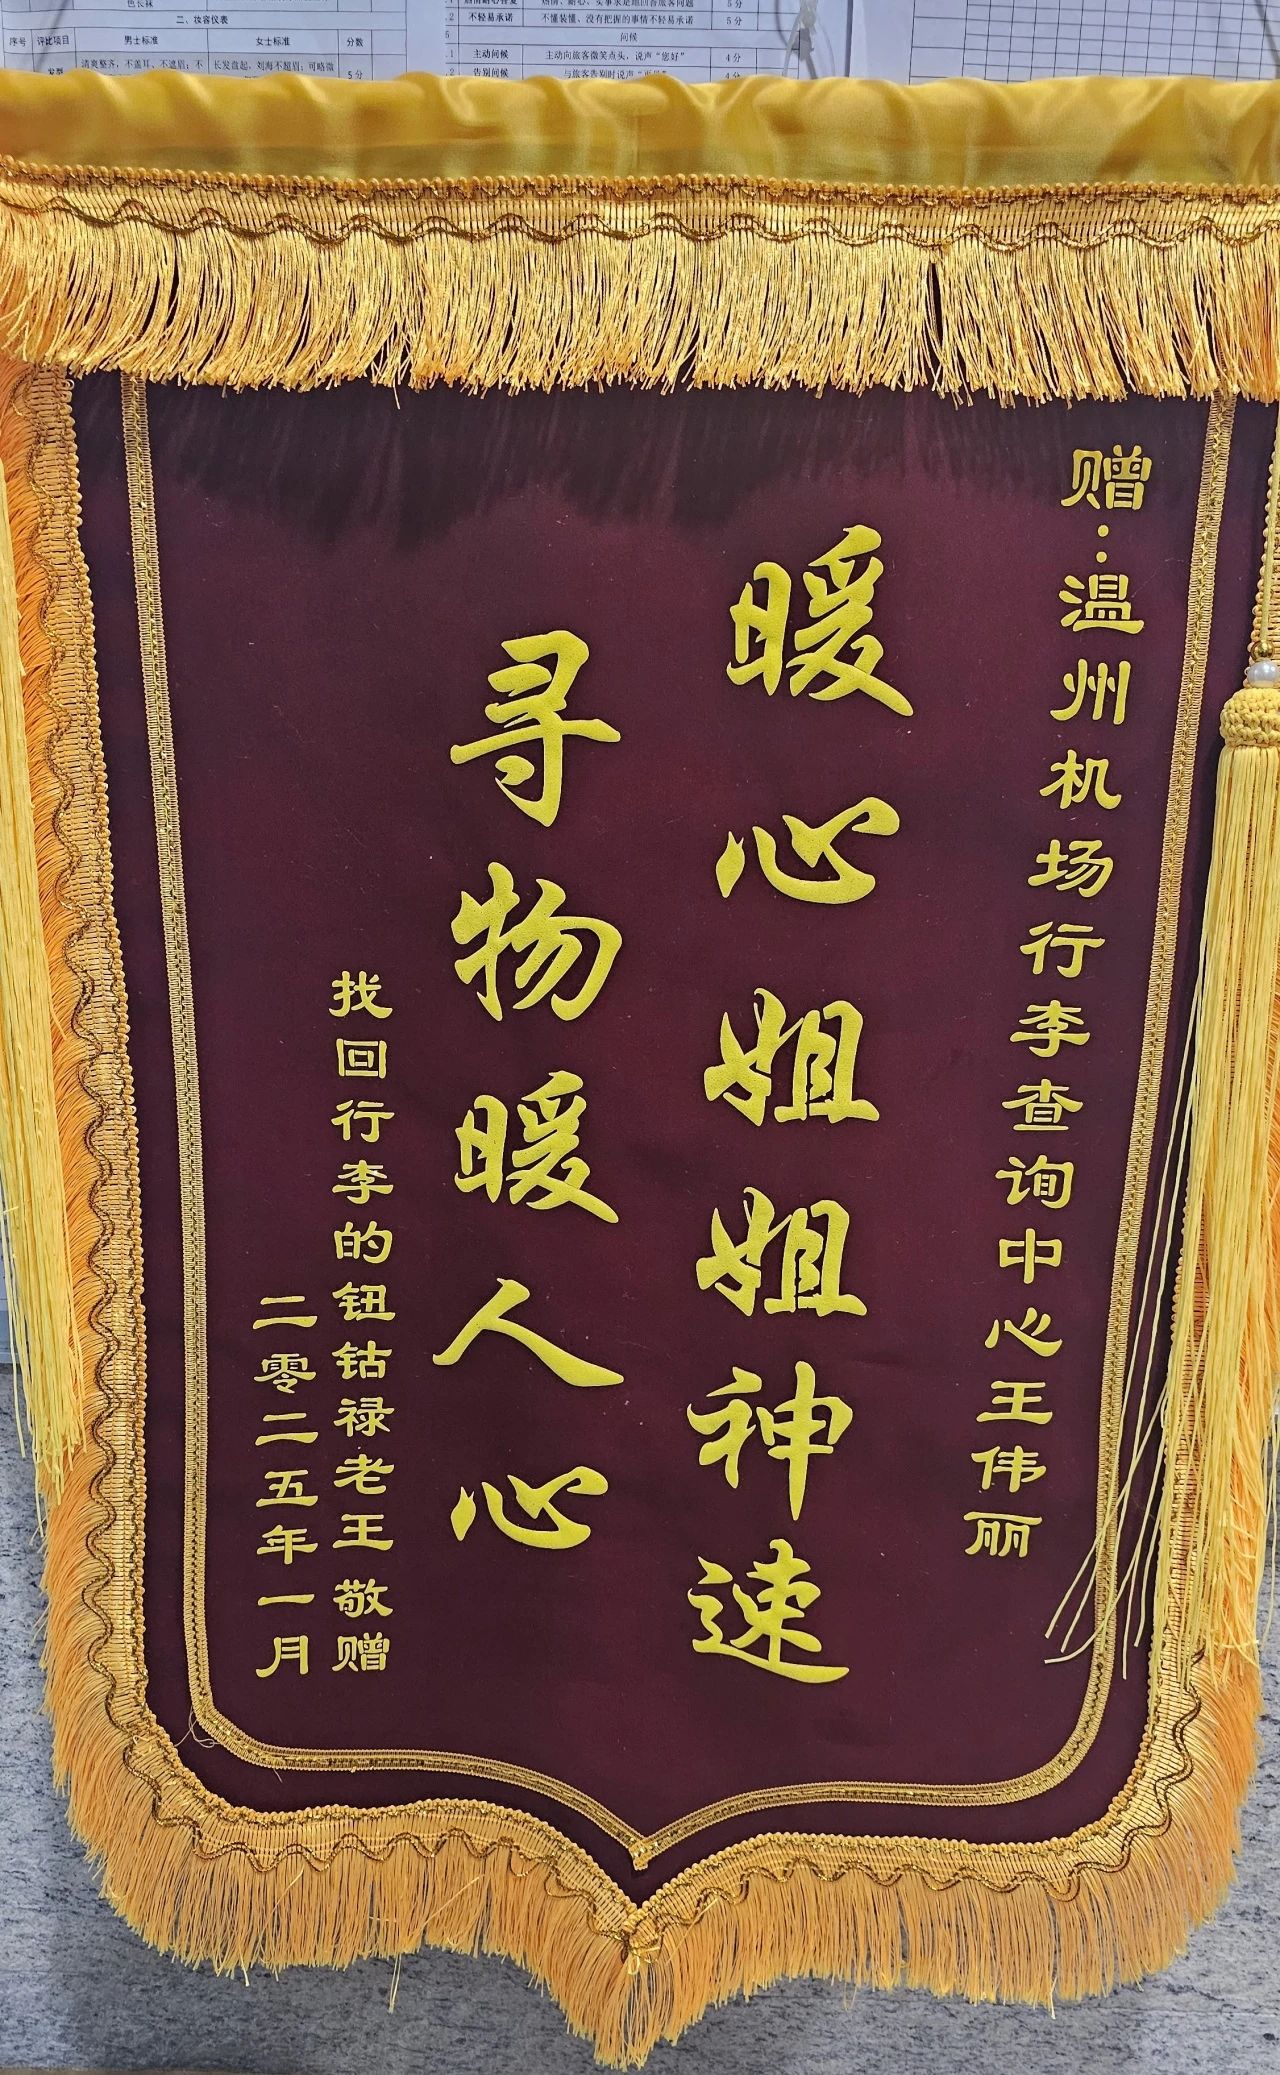 色长袜
二、妆容仪表
序号 评比项目 男士标准 女士标准 分数
发型 清爽整齐，不盖耳、不遮眉；不 长发盘起，刘海不超眉；可略微 5分
5分
.2 不轻易承诺 不懂装懂、没有把握的事情不轻易承诺 5分
问候
.1 主动问候 主动向旅客微笑点头，说声“您好” 4分
.2 告别问候 与旅客告别时说声 4分
赠：温州机场行李查询中心王伟丽
暖心姐姐神速
寻物暖人心
找回行李的钮钴禄老王敬赠
二零二五年一月